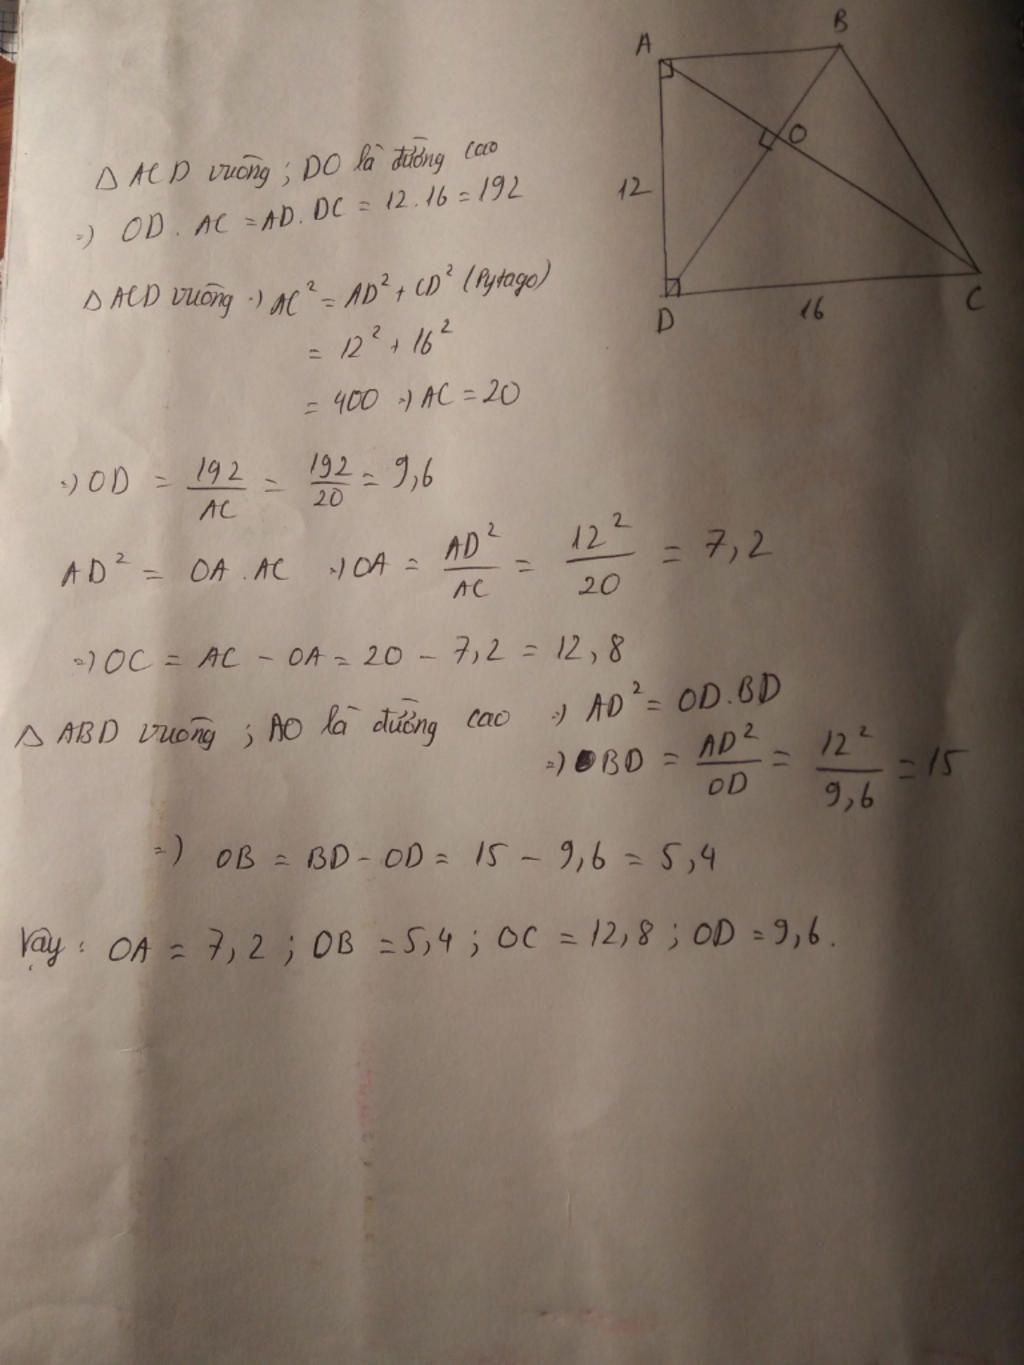 A
B
O
12
D
16
C
Δ ACD vuông ; DO là đường cao
=) OD . AC = AD . DC = 12 . 16 = 192
Δ ACD vuông =) AC² = AD² + CD² (Pytago)
= 12² + 16²
= 400 =) AC = 20
=) OD = 192/AC = 192/20 = 9,6
AD² = OA . AC =) OA = AD²/AC = 12²/20 = 7,2
=) OC = AC - OA = 20 - 7,2 = 12,8
Δ ABD vuông ; AO là đường cao =) AD² = OD.BD
=) BD = AD²/OD = 12²/9,6 = 15
=) OB = BD - OD = 15 - 9,6 = 5,4
Vậy : OA = 7,2 ; OB = 5,4 ; OC = 12,8 ; OD = 9,6.